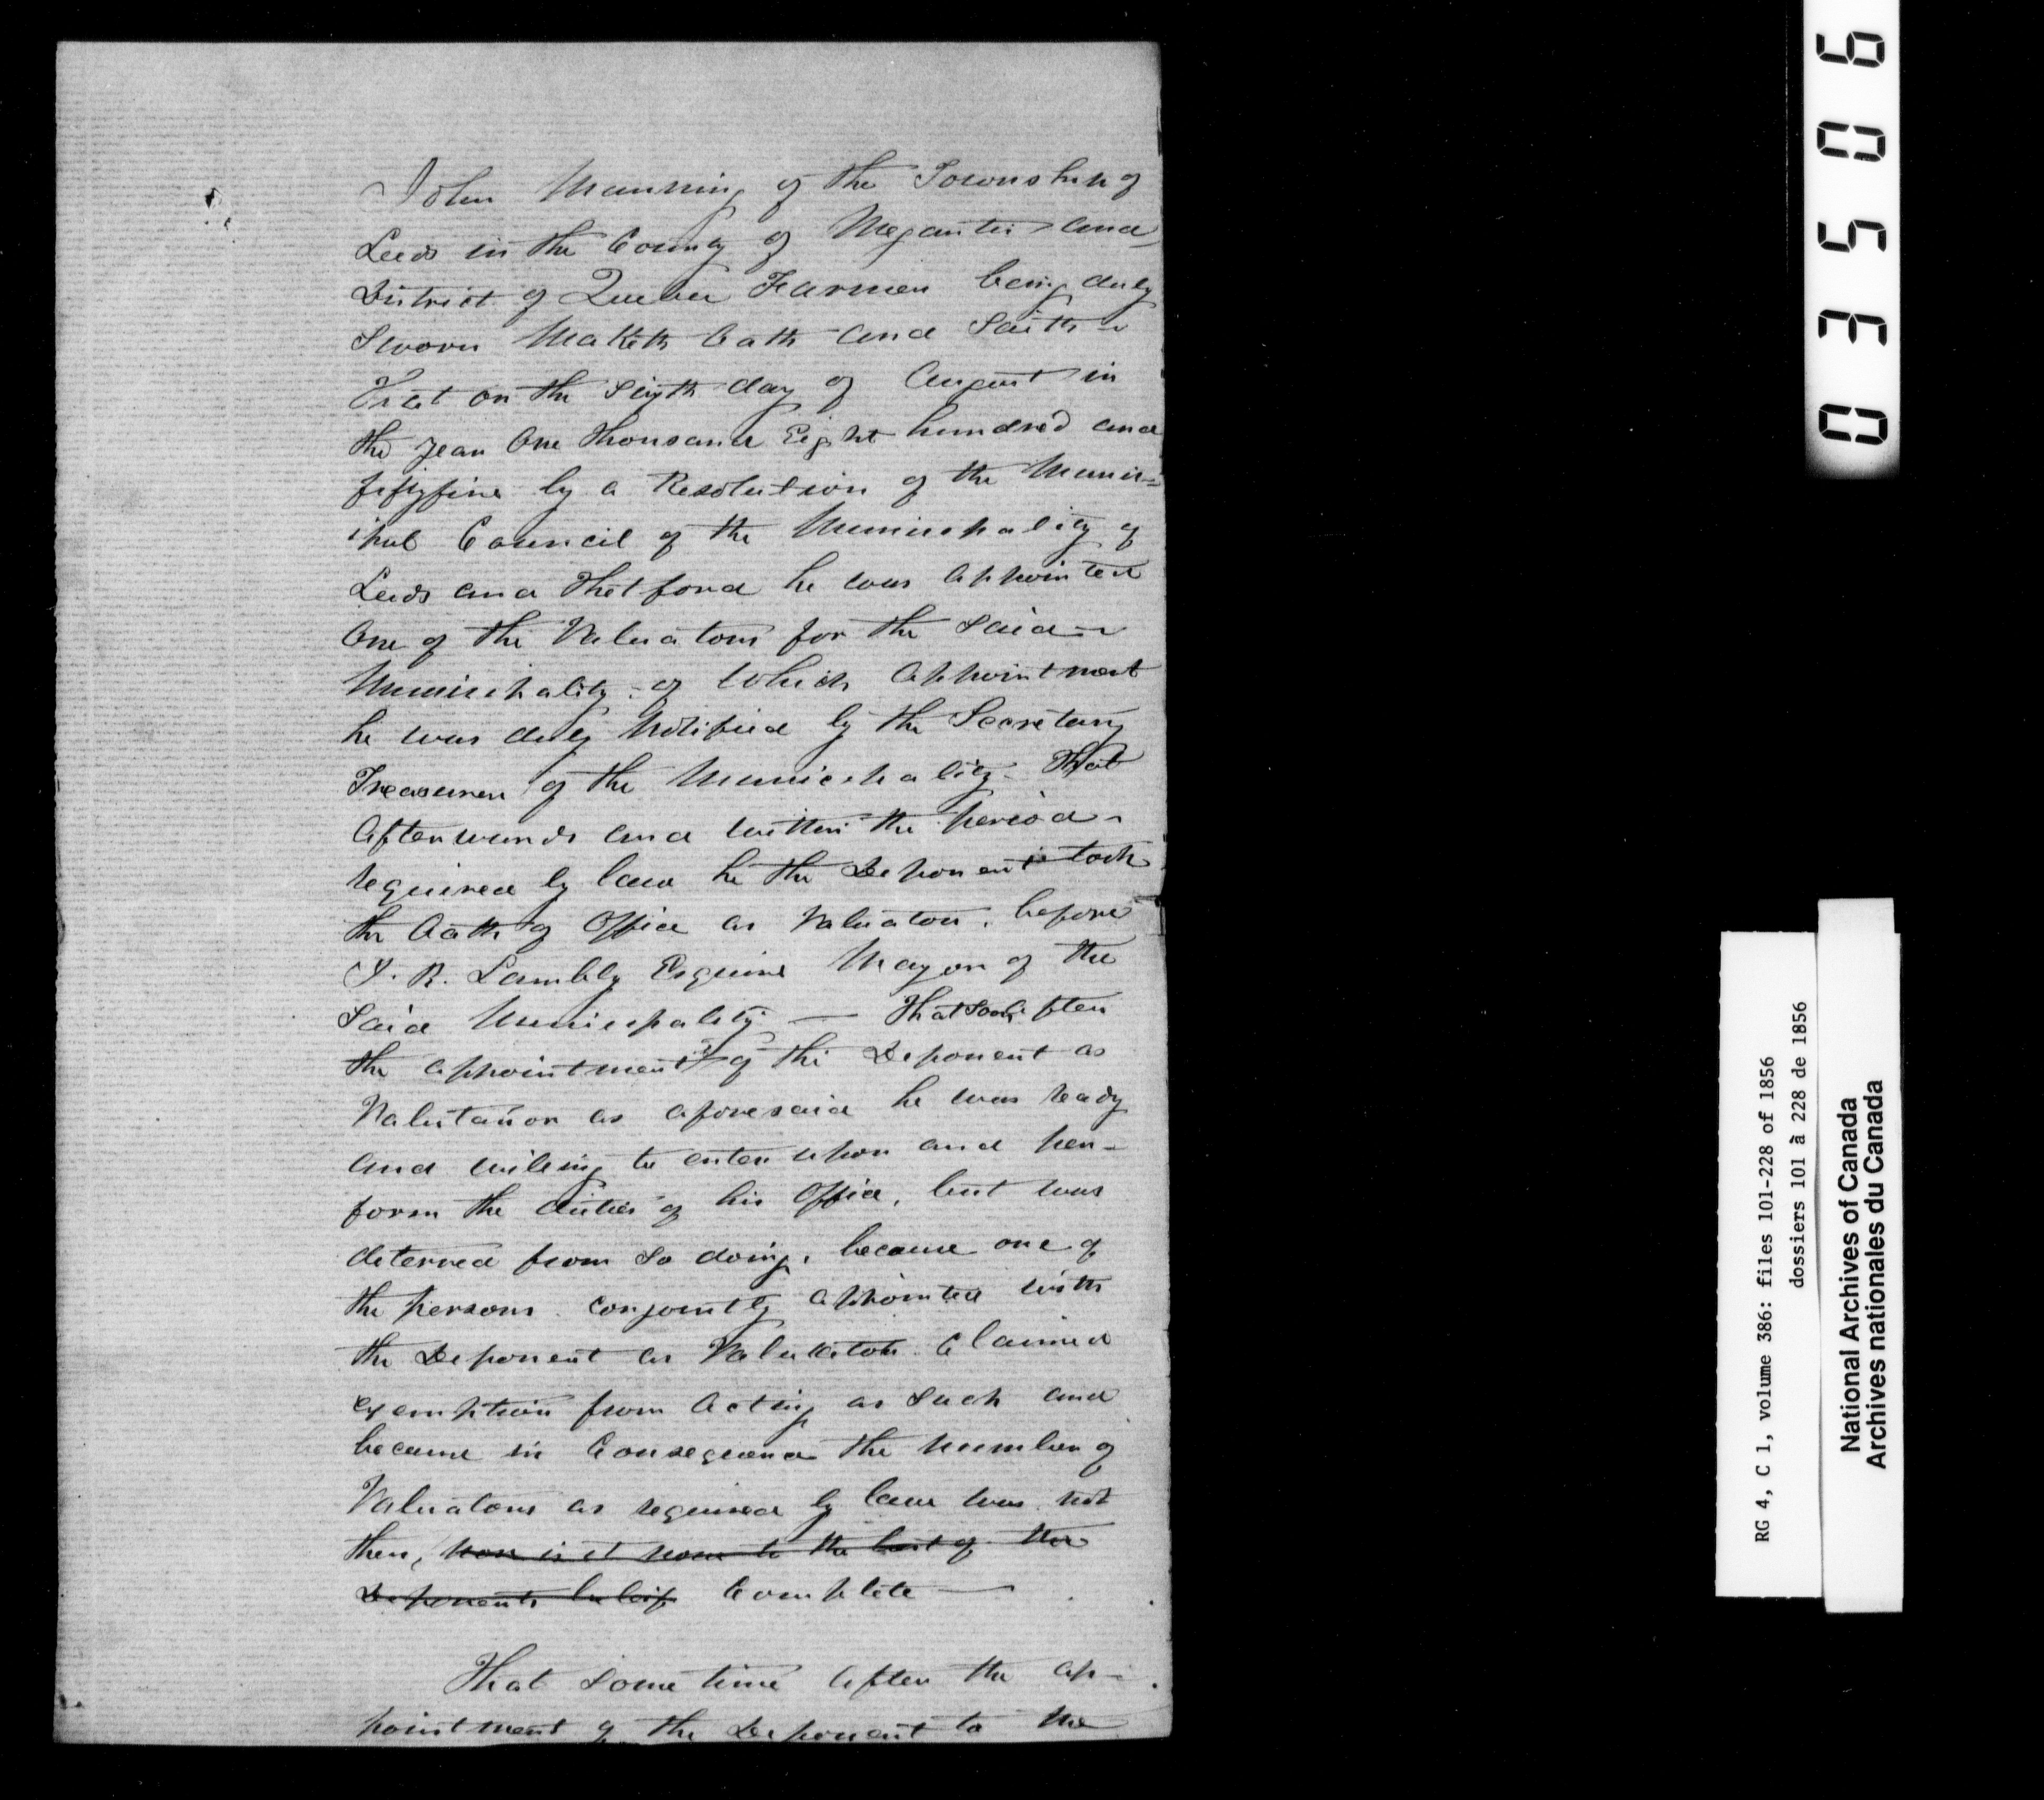 John Manning of the Township of
Leeds in the County of Megantic and
District of Quebec Farmer being duly
Sworn Maketh Oath and Saith
That on the Sixth day of August in
the year One thousand Eight hundred and
fiftyfive by a Resolution of the Munic=
ipal Council of the Municipality of
Leeds and Thetford he was appointed
One of the Valuators for the said
Municipality, of which appointment
he was duly Notified by the Secretary
Treasurer of the Municipality. That
afterwards and within the period
required by law he the Deponent took
the Oath of Office as Valuator, before
J. R. Lambly Esquire Mayor of the
Said Municipality — That soon after
the appointment of the Deponent as
Valutauor as aforesaid he was ready
and willing to enter upon and per-
form the duties of his Office, but was
deterred from so doing, because one of
the persons conjointly appointed with
the Deponent as Valuator Claimed
exemption from Acting as such and
because in Consequence the number of
Valuators as required by law was not
then, nor is it now to the best of the
Deponents belief Complete —
That some time after the ap-
pointment of the Deponent to the
03506
RG 4, C 1, volume 386: files 101-228 of 1856
dossiers 101 à 228 de 1856
National Archives of Canada
Archives nationales du Canada